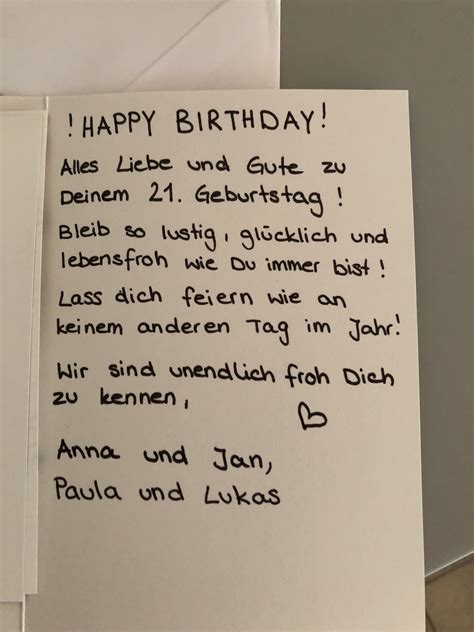 ! HAPPY BIRTHDAY !
Alles Liebe und Gute zu
Deinem 21. Geburtstag !
Bleib so lustig, glücklich und
lebensfroh wie Du immer bist !
Lass dich feiern wie an
keinem anderen Tag im Jahr!
Wir sind unendlich froh Dich
zu kennen,
Anna und Jan,
Paula und Lukas